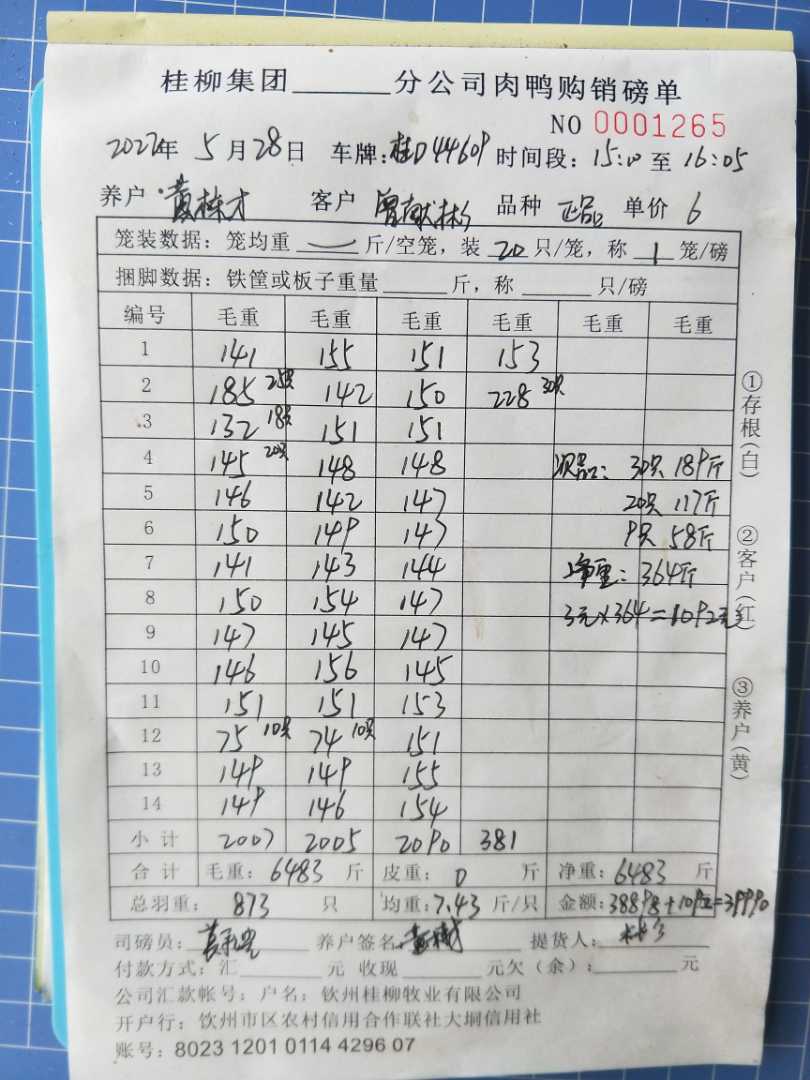 桂柳集团______分公司肉鸭购销磅单
NO 0001265
2022年 5月28日 车牌:桂D44609 时间段: 15:10 至 16:05
养户 黄栋才 客户 曾献彬 品种 正品 单价 6
笼装数据: 笼均重 — 斤/空笼, 装 20 只/笼, 称 1 笼/磅
捆脚数据: 铁筐或板子重量______斤, 称______只/磅
编号 毛重 毛重 毛重 毛重 毛重 毛重
1 141 155 151 153
2 185 25只 142 150 228 30只
3 132 18只 151 151
4 145 20只 148 148 次品: 30只 189斤
5 146 142 147 20只 117斤
6 150 149 147 9只 58斤
7 141 143 144 净重: 364斤
8 150 154 147 3元×364=1092元
9 147 145 147
10 146 156 145
11 151 151 153
12 75 10只 74 10只 151
13 149 149 155
14 149 146 154
小计 2007 2005 2090 381
合计 毛重: 6483 斤 皮重: 0 斤 净重: 6483 斤
总羽重: 873 只 均重: 7.43 斤/只 金额: 38898+1092=39990
司磅员: 养户签名: 提货人:
付款方式: 汇______元 收现______元欠(余):______元
公司汇款帐号: 户名: 钦州桂柳牧业有限公司
开户行: 钦州市区农村信用合作联社大垌信用社
账号: 8023 1201 0114 4296 07
①存根(白)
②客户(红)
③养户(黄)